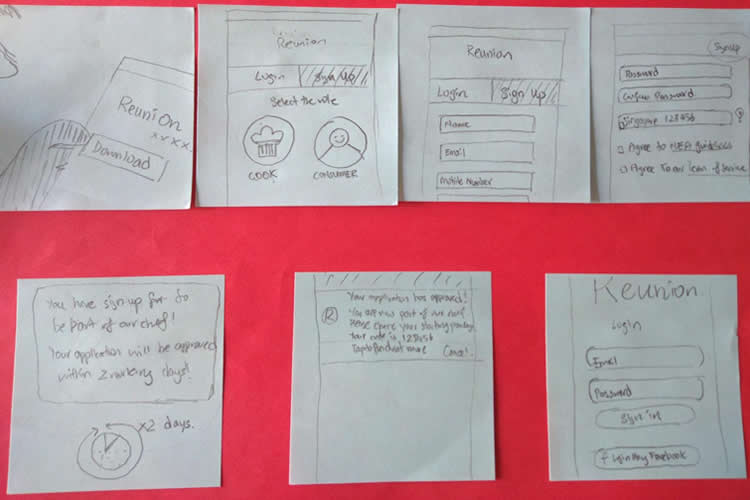 Reunion
Download
Reunion
Login
Sign Up
Select the role
COOK
CONSUMER
Reunion
Login
Sign Up
Name
Email
Mobile Number
Sign Up
Password
Confirm Password
Singapore 123456
?
Agree to NEA guidelines
Agree to our of service
You have sign up for to
be part of our chef!
Your application will be approved
within 2 working days!
x2 days.
Your application has approved!
R
You are now part of our
Please your starting package
Your code is 123456
Tap to find out more
Cancel
Reunion
Login
Email
Password
Sign in
f Login Facebook